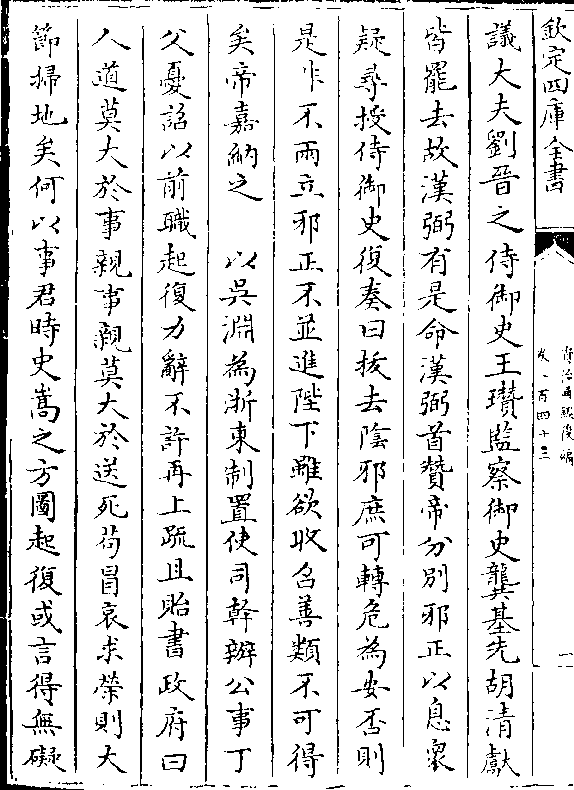 欽定四庫全書
資治通鑑後編
卷一百四十三
議大夫劉晉之侍御史王瓚監察御史龔基先胡清獻
皆罷去故漢弼有是命漢弼首贊帝分別邪正以息衆
疑尋授侍御史復奏曰拔去陰邪庶可轉危為安否則
是非不兩立邪正不並進陛下雖欲收召善類不可得
矣帝嘉納之　以吳淵為浙東制置使司幹辦公事丁
父憂詔以前職起復力辭不許再上疏且貽書政府曰
人道莫大於事親事親莫大於送死苟冒哀求榮則大
節掃地矣何以事君時史嵩之方圖起復或言得無礙